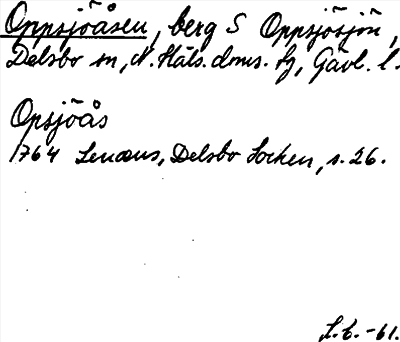 Oppsjöåsen, berg S Oppsjösjön,
Delsbo sn, N. Häls. doms. fg, Gävl. l.
Opsjöås
1764 Lenæus, Delsbo Socken, s. 26.
L.b. -61.